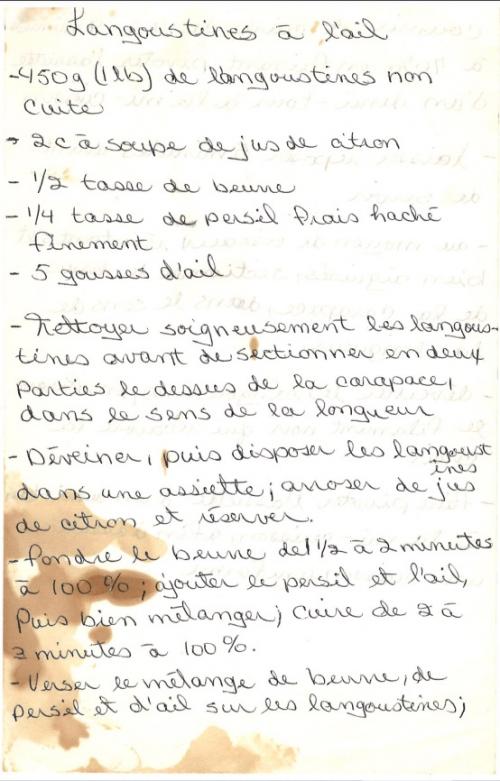 Langoustines à l'ail
-450g (1 lb) de langoustines non
cuite
- 2 c à soupe de jus de citron
- 1/2 tasse de beurre
- 1/4 tasse de persil frais haché
finement
- 5 gousses d'ail
- Nettoyer soigneusement les langous-
tines avant de sectionner en deux
parties le dessus de la carapace,
dans le sens de la longueur
- Déveiner, puis disposer les langoust
ines
dans une assiette; arroser de jus
de citron et réserver.
- Fondre le beurre de 1 1/2 à 2 minutes
à 100 %; ajouter le persil et l'ail,
Puis bien mélanger; cuire de 2 à
3 minutes à 100 %.
- Verser le mélange de beurre, de
persil et d'ail sur les langoustines;